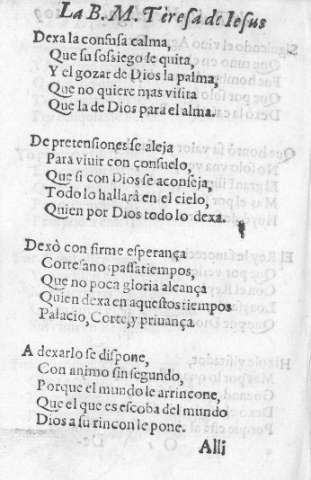 La B. M. Teresa de Iesus
Dexa la confusa calma,
Que su sossiego se quita,
Y el gozar de Dios la palma,
Que no quiere mas visita
Que la de Dios para el alma.
De pretensiones se aleja
Para viuir con consuelo,
Que si con Dios se aconseja,
Todo lo hallarà en el cielo,
Quien por Dios todo lo dexa.
Dexò con firme esperança
Cortesano passatiempos,
Que no poca gloria alcança
Quien dexa en aquestos tiempos
Palacio, Corte, y priuança.
A dexarlo se dispone,
Con animo sin segundo,
Porque el mundo le arrincone,
Que el que es escoba del mundo
Dios a su rincon le pone.
Alli